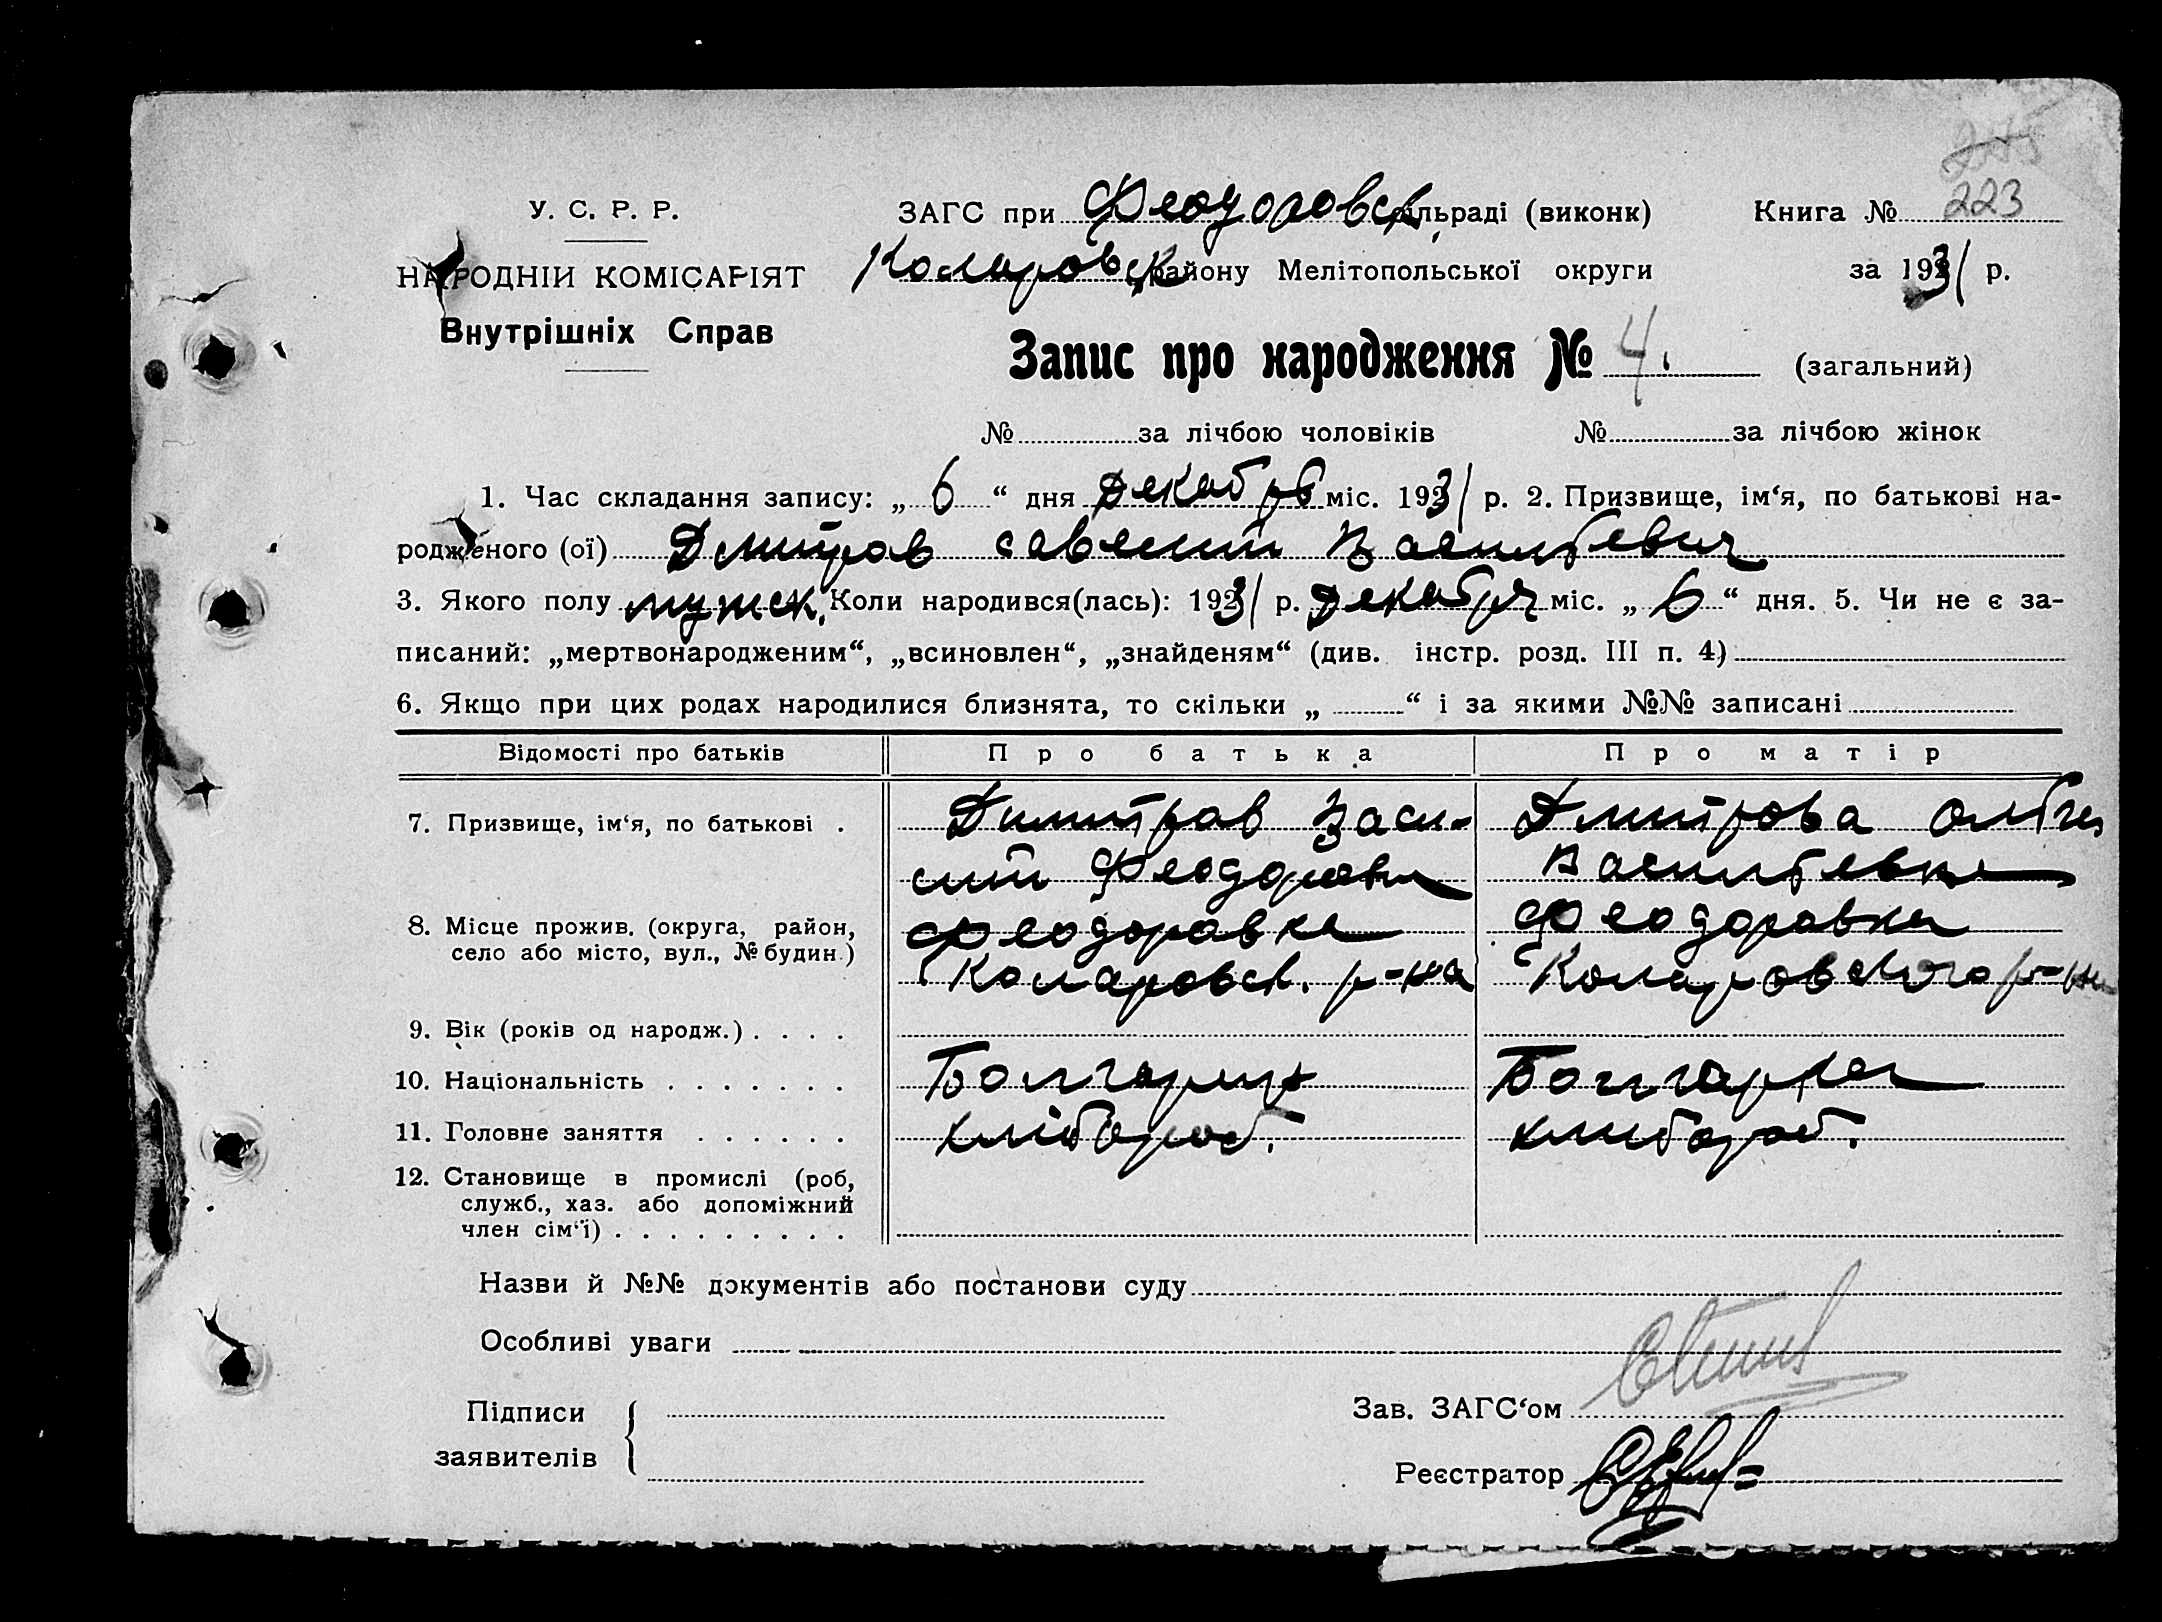 У. С. Р. Р.
НАРОДНІЙ КОМІСАРІЯТ
Внутрішніх Справ
ЗАГС при Феодоровск. сільраді (виконк) Книга № 223
Коларовск району Мелітопольської округи за 1931 р.
Запис про народження № 4. (загальний)
№ за лічбою чоловіків № за лічбою жінок
1. Час складання запису: „ 6 “ дня Декабря міс. 1931 р. 2. Призвище, ім‘я, по батькові на-
родженого (ої) Дмитров Савелий Васильевич
3. Якого полу мужск. 4. Коли народився(лась): 1931 р. Декабря міс. „ 6 “ дня. 5. Чи не є за-
писаний: „мертвонародженим“, „всиновлен“, „знайденям“ (див. інстр. розд. III п. 4)
6. Якщо при цих родах народилися близнята, то скільки „ “ і за якими №№ записані
Відомості про батьків Про батька Про матір
7. Призвище, ім‘я, по батькові . Димитров Васи- Дмитрова Ольга
лий Феодорови Васильевна
8. Місце прожив. (округа, район, Феодоровка Феодоровка
село або місто, вул., № будин.) Коларовск. р-на Коларовского р-на
9. Вік (років од народж.) . . . .
10. Національність . . . . . . . Болгарин Болгарка
11. Головне заняття . . . . . . хлібороб. хлибороб.
12. Становище в промислі (роб,
служб., хаз. або допоміжний
член сім‘ї) . . . . . . . . .
Назви й №№ документів або постанови суду
Особливі уваги
Підписи
заявителів
Зав. ЗАГС‘ом
Реєстратор